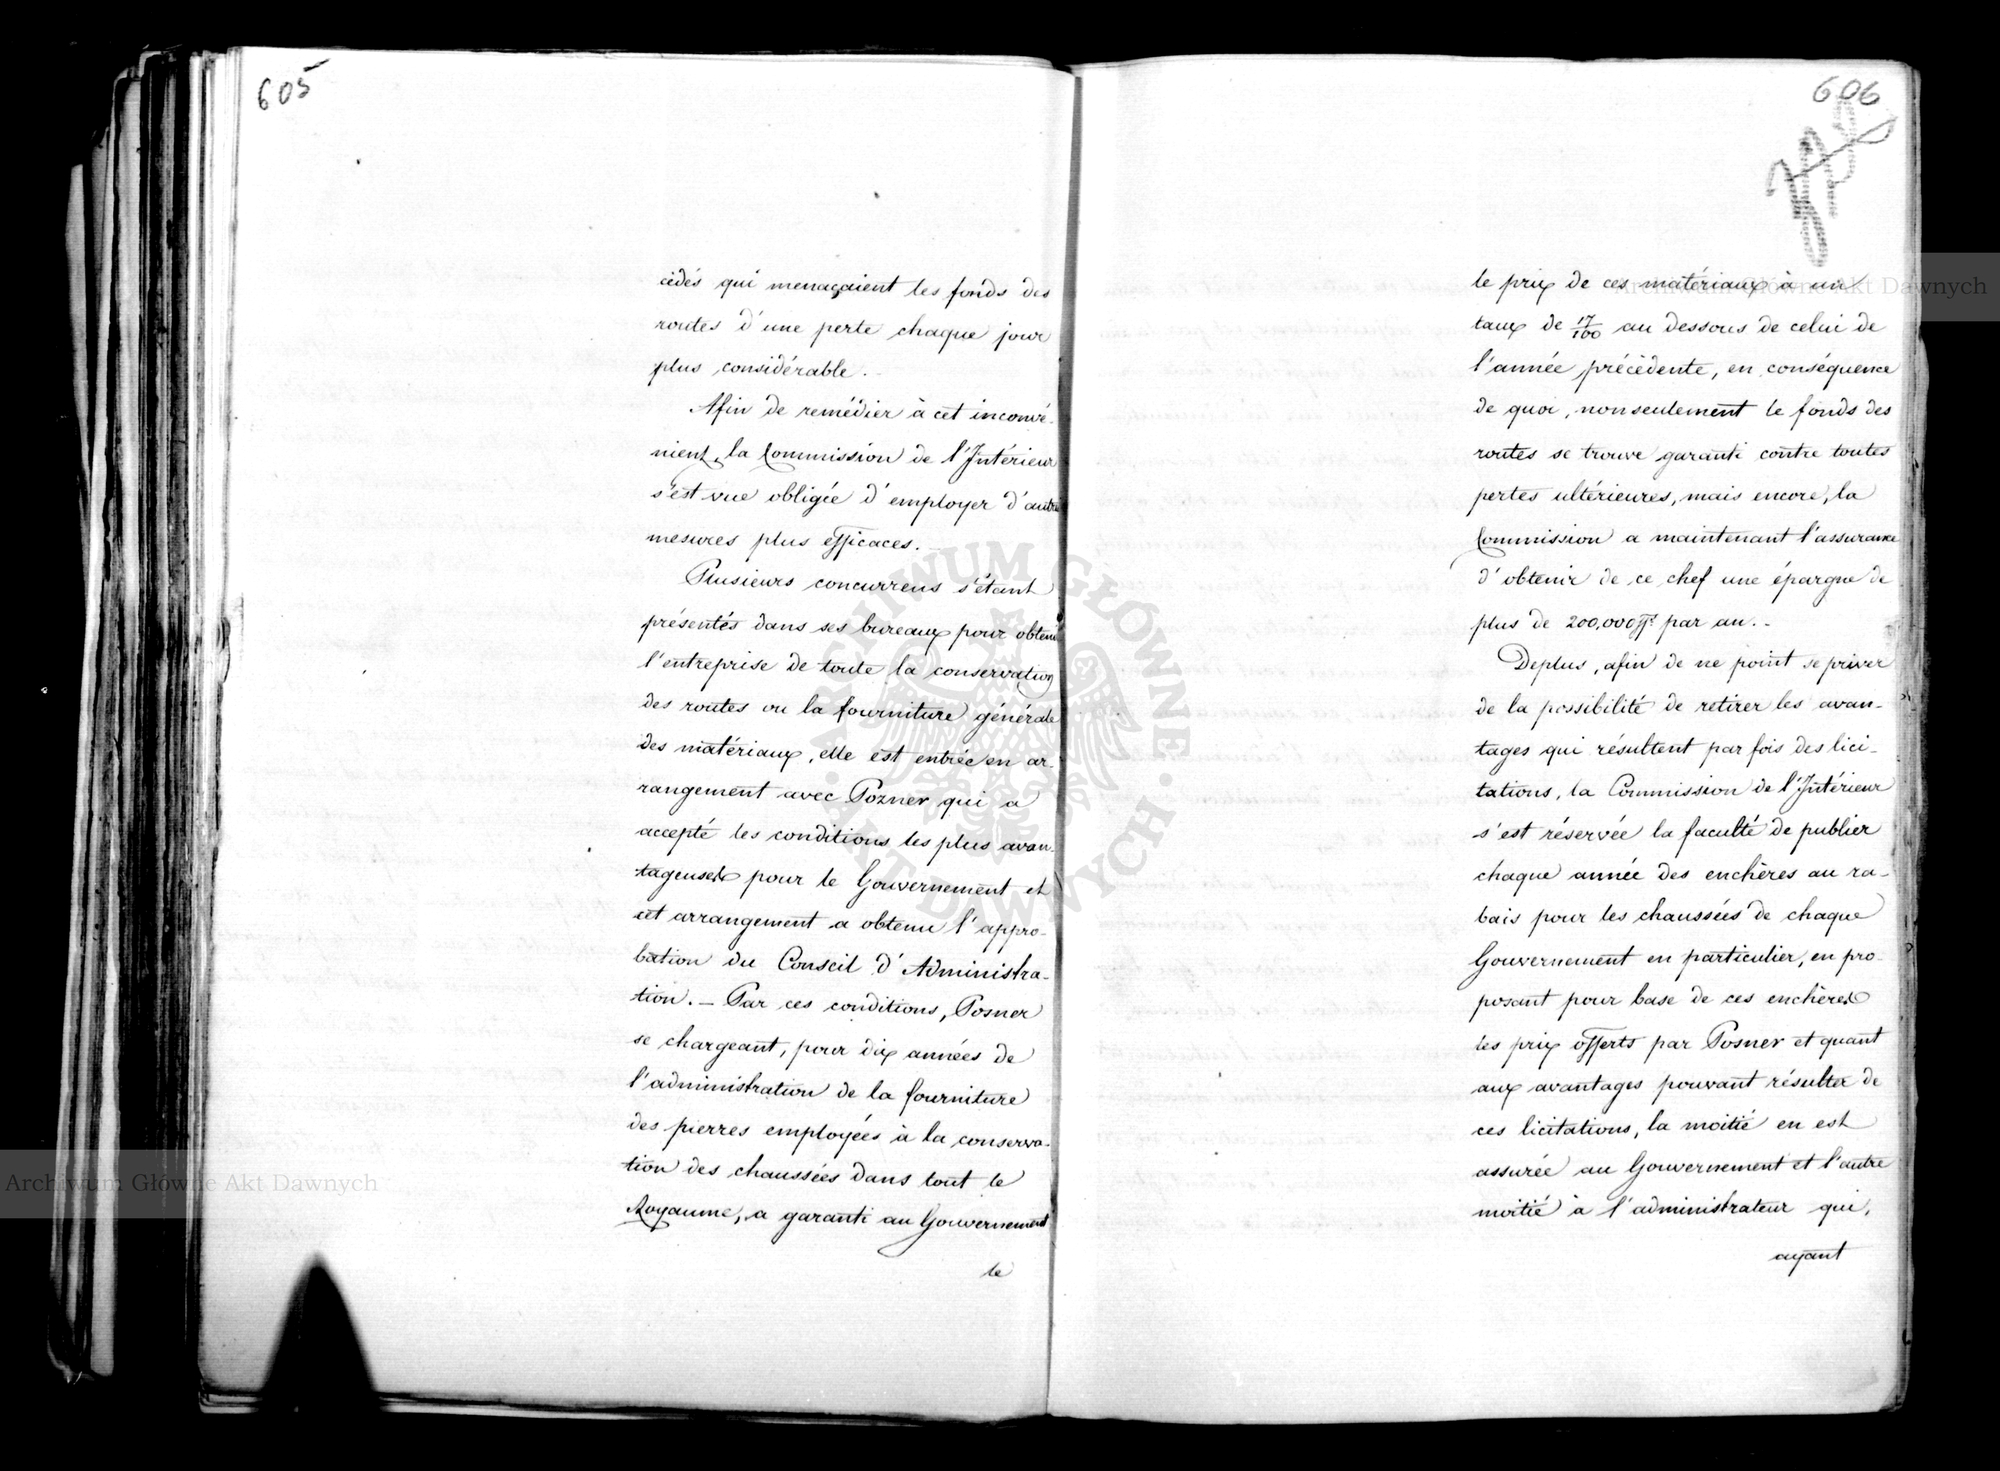 605
cédés qui menaçaient les fonds des
routes d'une perte chaque jour
plus considérable.
Afin de remédier à cet inconvé-
nient, la Commission de l'Intérieur
s'est vue obligée d'employer d'autres
mesures plus efficaces.
Plusieurs concurrens s'étant
présentés dans ses bureaux pour obtenir
l'entreprise de toute la conservation
des routes ou la fourniture générale
des matériaux, elle est entrée en ar-
rangement avec Pozner qui a
accepté les conditions les plus avan-
tageuses pour le Gouvernement et
cet arrangement a obtenu l'appro-
bation du Conseil d'Administra-
tion. — Par ces conditions, Posner
se chargeant, pour dix années de
l'administration de la fourniture
des pierres employées à la conserva-
tion des chaussées dans tout le
Royaume, a garanti au Gouvernement
le
606
le prix de ces matériaux à un
taux de 17/100 au dessous de celui de
l'année précédente, en conséquence
de quoi, nonseulement le fonds des
routes se trouve garanti contre toutes
pertes ultérieures, mais encore, la
Commission a maintenant l'assurance
d'obtenir de ce chef une épargne de
plus de 200,000 par an. -
Deplus, afin de ne point se priver
de la possibilité de retirer les avan-
tages qui résultent par fois des lici-
tations, la Commission de l'Intérieur
s'est réservée la faculté de publier
chaque année des enchères au ra-
bais pour les chaussées de chaque
Gouvernement en particulier, en pro-
posant pour base de ces enchères
les prix offerts par Posner et quant
aux avantages pouvant résulter de
ces licitations, la moitié en est
assurée au Gouvernement et l'autre
moitié à l'administrateur qui,
ayant
Archiwum Główne Akt Dawnych
Archiwum Główne Akt Dawnych
ARCHIWUM GŁÓWNE AKT DAWNYCH